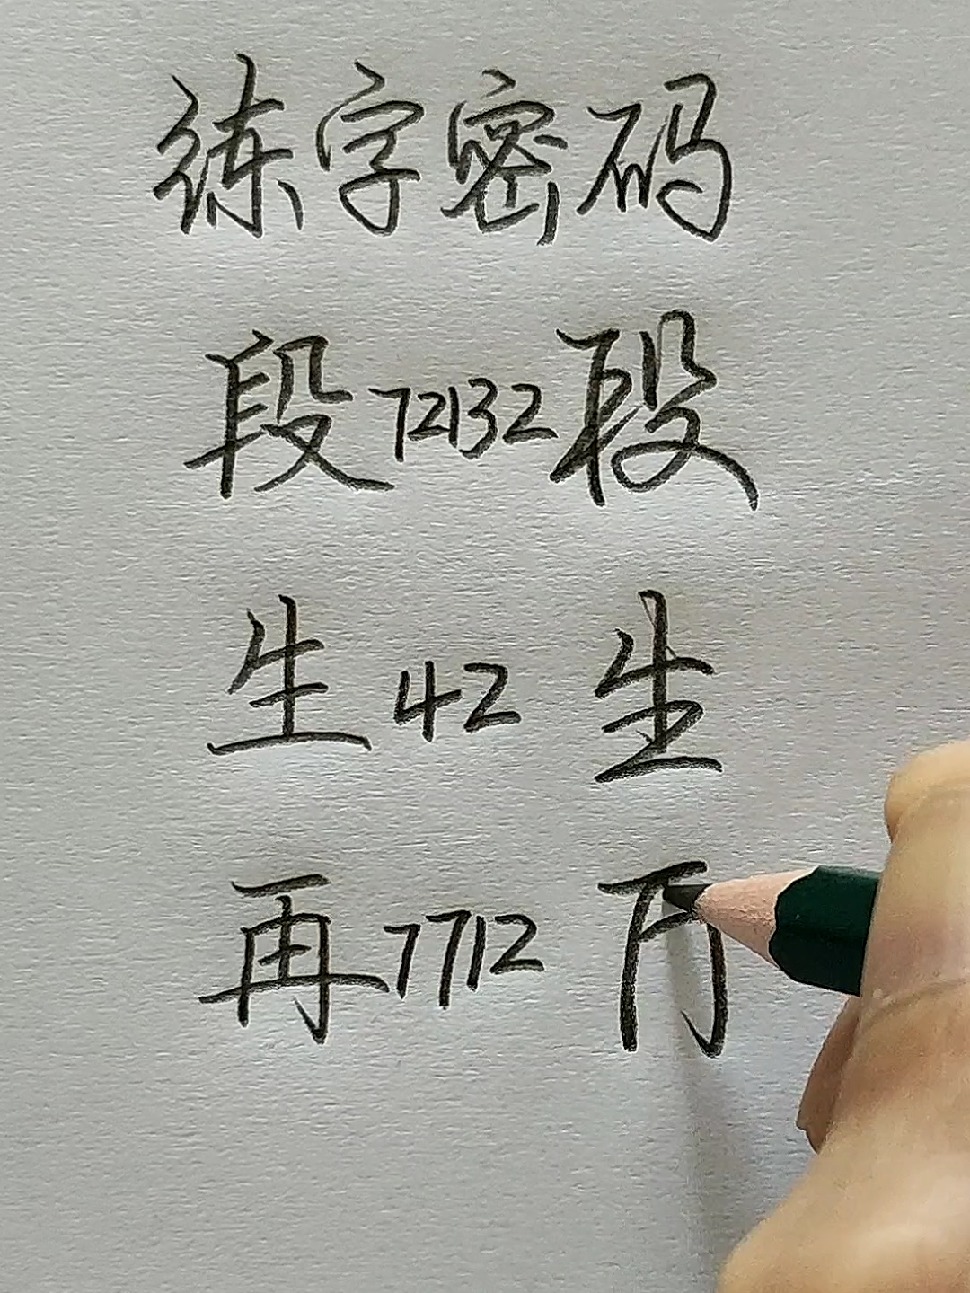 练字密码
段 72132 段
生 42 生
再 7712